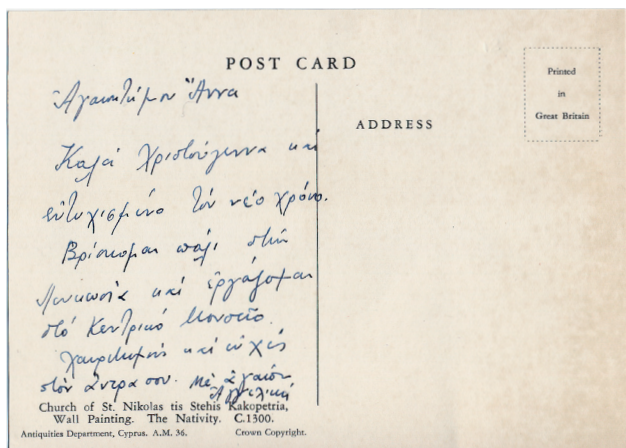 POST CARD
Ἀγαπητή μου Ἄννα
ADDRESS
Printed
in
Great Britain
Καλά Χριστούγεννα καί
εὐτυχισμένο τόν νέο χρόνο.
Βρίσκομαι πάλι στήν
Λευκωσία καί ἐργάζομαι
στό Κεντρικό Μουσεῖο.
χαιρετισμούς καί εὐχές
στόν ἄντρα σου. Μέ ἀγάπη
Ἀγγελική
Church of St. Nikolas tis Stehis Kakopetria,
Wall Painting. The Nativity. C.1300.
Antiquities Department, Cyprus. A.M. 36. Crown Copyright.